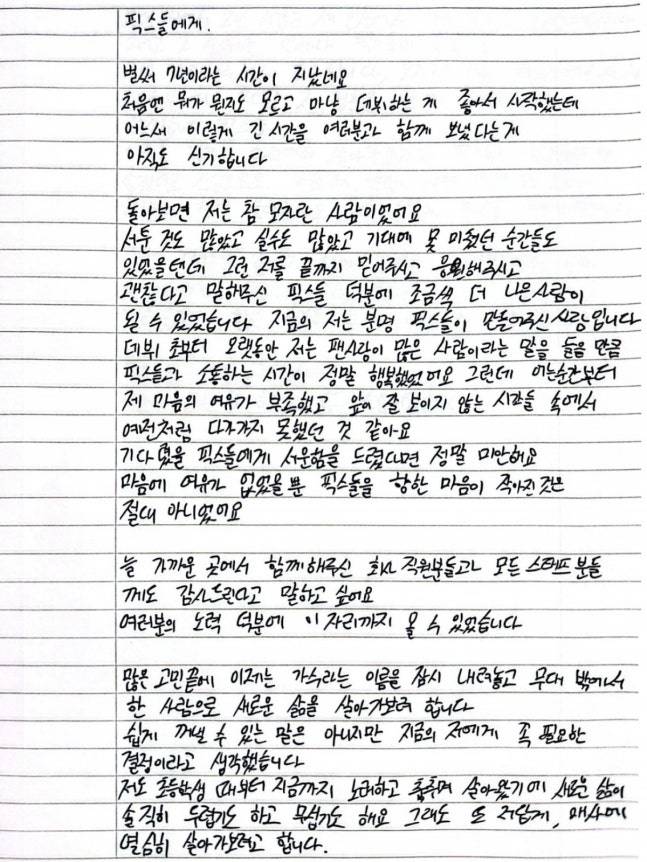 픽스들에게.
벌써 7년이라는 시간이 지났네요
처음엔 뭐가 뭔지도 모르고 마냥 데뷔하는 게 좋아서 시작했는데
어느새 이렇게 긴 시간을 여러분과 함께 보냈다는게
아직도 신기합니다
돌아보면 저는 참 모자란 사람이었어요
서툰 것도 많았고 실수도 많았고 기대에 못 미쳤던 순간들도
있었을텐데 그런 저를 끝까지 믿어주시고 응원해주시고
괜찮다고 말해주신 픽스들 덕분에 조금씩 더 나은사람이
될 수 있었습니다 지금의 저는 분명 픽스들이 만들어주신 사람입니다
데뷔 초부터 오랫동안 저는 팬사랑이 많은 사람이라는 말을 들을 만큼
픽스들과 소통하는 시간이 정말 행복했었어요 그런데 어느순간부터
제 마음의 여유가 부족했고 앞이 잘 보이지 않는 시간들 속에서
예전처럼 다가가지 못했던 것 같아요
기다렸을 픽스들에게 서운함을 드렸다면 정말 미안해요
마음에 여유가 없었을 뿐 픽스들을 향한 마음이 작아진것은
절대 아니었어요
늘 가까운 곳에서 함께해주신 회사 직원분들과 모든 스태프 분들
께도 감사드린다고 말하고 싶어요
여러분의 노력 덕분에 이 자리까지 올 수 있었습니다
많은 고민끝에 이제는 가수라는 이름을 잠시 내려놓고 무대 밖에서
한 사람으로 새로운 삶을 살아가보려 합니다
쉽게 꺼낼 수 있는 말은 아니지만 지금의 저에게 꼭 필요한
결정이라고 생각했습니다
저도 초등학생 때부터 지금까지 노래하고 춤추며 살아왔기에 새로운 삶이
솔직히 두렵기도 하고 무섭기도 해요 그래도 또 저답게, 매사에
열심히 살아가보려고 합니다.